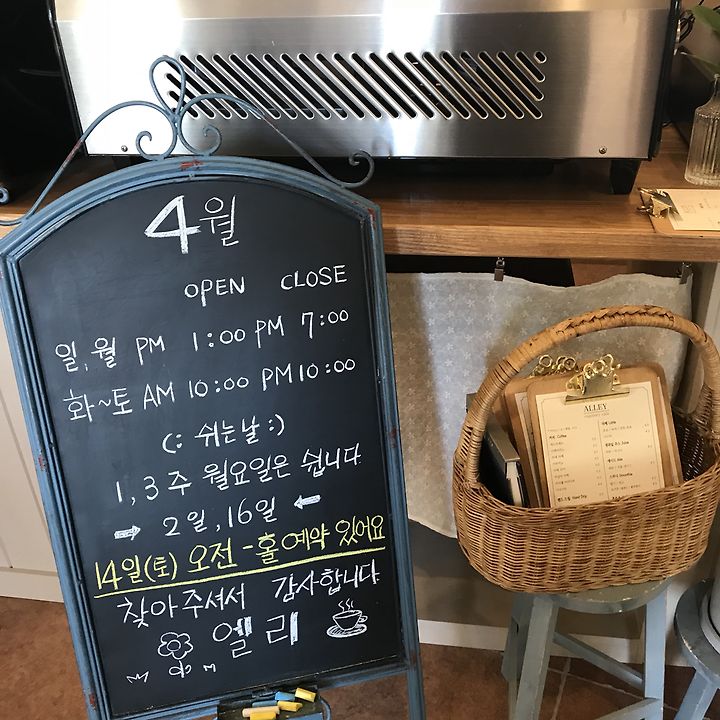 4월
OPEN CLOSE
일,월 PM 1:00 PM 7:00
화~토 AM 10:00 PM 10:00
(: 쉬는날 :)
1, 3주 월요일은 쉽니다
→ 2일, 16일 ←
14일(토) 오전 - 홀예약 있어요
찾아주셔서 감사합니다
엘리
ALLEY